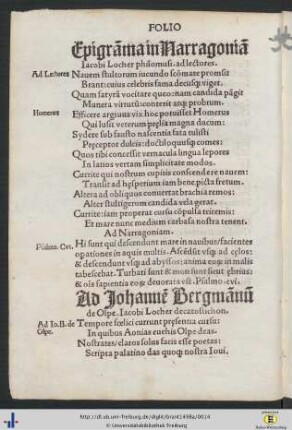 FOLIO
Epigrāma in Narragoniā
Iacobi Locher philomusi. ad lectores.
Ad Lectores Nauem stultorum iucundo scōmate promsit
Brant: cuius celebris fama decusq; viget.
Quam satyrā vocitare queo: nam candida pāgit
Munera virtutū: conterit atq; probrum.
Homerus Efficere argiuus vix hoc potuisset Homerus
Qui lusit veterum pselia magna ducum:
Sydere sub fausto nascentia fata tulisti
Perceptor dulcis: doctiloquusq; comes:
Quos tibi concessit vernacula lingua lepores
In latios vertam simplicitate modos.
Currite qui nostrum cupitis conscendere nauem:
Transit ad hesperium iam bene picta fretum.
Altera ad obliquos conuertat brachia remos:
Alter stultigerum candida vela gerat.
Currite: iam properat cursu cōpulsa triremis:
Et mare nunc medium carbasa nostra tenent.
Ad Narragoniam.
Psalmo. Cvi. Hi sunt qui descendunt mare in nauibus/ facientes
opationes in aquis multis. Ascēdūt vsq; ad celos:
& descendunt vsq; ad abyssos: anima eoꝝ in malis
tabescebat. Turbati sunt & moti sunt sicut ebrius:
& ois sapientia eoꝝ deuorata est. Psalmo. cvi.
Ad Johannē Bergmānū
de Olpe. Iacobi Locher decatostichon.
Ad Io. B. de Olpe. Tempore foelici currunt presentia cursu:
In quibus Aonias euehis Olpe deas.
Nostrates/ claros solus facis esse poetas:
Scripta palatino das quoq; nostra Ioui.
http://dl.ub.uni-freiburg.de/diglit/brant1498a/0014
© Universitätsbibliothek Freiburg